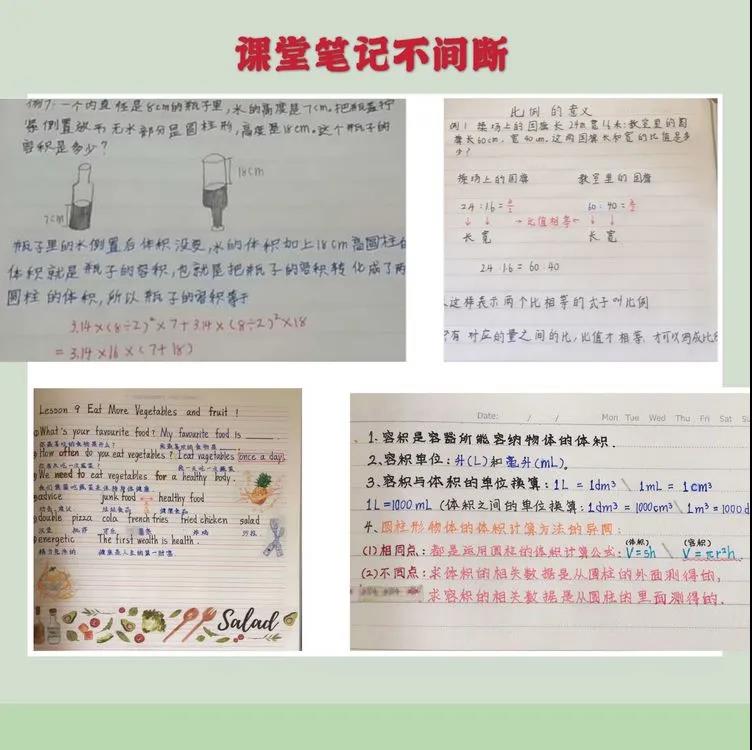 课堂笔记不间断
例7: 一个内直径是8cm的瓶子里,水的高度是7cm.把瓶盖拧
紧倒置放平无水部分是圆柱形,高度是18cm.这个瓶子的
容积是多少?
18cm
7cm
瓶子里的水倒置后体积没变,水的体积加上18cm高圆柱
体积就是瓶子的容积,也就是把瓶子的容积转化成了两
圆柱的体积,所以瓶子的容积等于
3.14×(8÷2)²×7+3.14×(8÷2)²×18
=3.14×16×(7+18)
比例的意义
例1 操场上的国旗长2.4m宽1.6米;教室里的国
旗长60cm,宽40cm.这两面国旗长和宽的比值是多
少?
操场上的国旗 教室里的国旗
2.4:1.6=3/2 60:40=3/2
↓ ↓ →比值相等← ↓ ↓
长 宽 长 宽
2.4:1.6=60:40
这样表示两个比相等的式子叫比例
只有对应的量之间的比,比值才相等,才可以组成比
Lesson 9 Eat More Vegetables and fruit!
What's your favourite food? My favourite food is ____.
你最喜欢的食物是什么? 我最喜欢的食物是
How often do you eat vegetables? I eat vegetables once a day.
你多久吃一次蔬菜? 我一天吃一次蔬菜
We need to eat vegetables for a healthy body.
我们需要吃蔬菜来保持身体健康.
advice junk food ↔ healthy food
劝告,建议 垃圾食品 健康食品
double pizza cola french fries fried chicken salad
汉堡 披萨 可乐 薯条 炸鸡 沙拉
energetic The first wealth is health.
精力充沛的 健康是人生的第一财富
Salad
Date: / / Mon Tue Wed Thu Fri Sat Su
1.容积是容器所能容纳物体的体积.
2.容积单位:升(L)和毫升(mL)。
3.容积与体积的单位换算:1L=1dm³ \ 1mL=1cm³
1L=1000mL (体积之间的单位换算:1dm³=1000cm³ \ 1m³=1000d
4.圆柱形物体的体积计算方法的异同:
(体积) (容积)
(1)相同点:都是运用圆柱的体积计算公式:V=sh \ V=πr²h.
(2)不同点:求体积的相关数据是从圆柱的外面测得的,
求容积的相关数据是从圆柱的里面测得的.